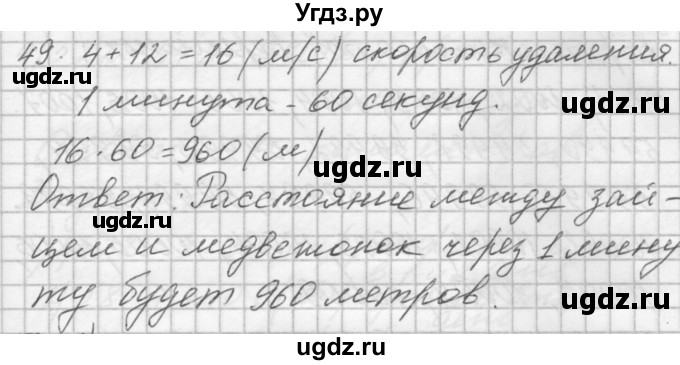 Угдз.ру
49. 4+12=16(м/с) скорость удаления.
ugdz.ru
1 минута - 60 секунд.
ugdz.ru
16·60=960(м)
ugdz.ru
Ответ: Расстояние между зай-
ugdz.ru
цем и медвежонок через 1 мину
ту будет 960 метров.
ugdz.ru
ugdz.ru
ugdz.ru